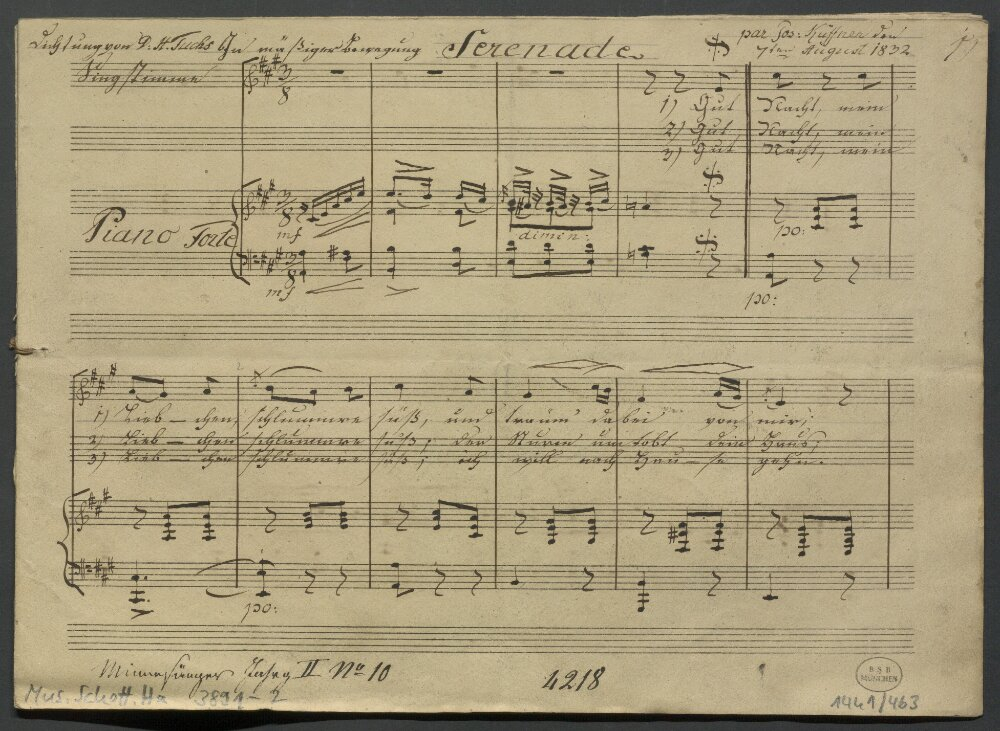 Dichtung von D. A. Fuchs In mäßiger Bewegung Serenade. par Jos. Küffner den
7ten August 1832
Singstimme
1) Gut Nacht, mein
2) Gut Nacht, mein
3) Gut Nacht, mein
Piano Forte
mf dimin: po:
mf po:
1) Lieb - chen, schlummre süß, und träum dabei von mir;
2) Lieb - chen schlummre süß; der Sturm umtobt dein Haus;
3) Lieb - chen schlummre süß; ich will nach Hau - se gehen.
po:
Minnesänger Jahrg II No 10 4218 1
Mus. Schott. Ha 3891-2 1441/463
BSB
MÜNCHEN